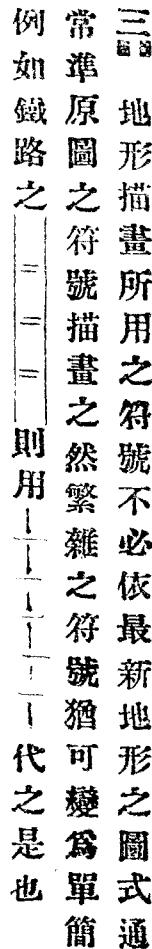 三 地形描畫所用之符號不必依最新地形之圖式通
常準原圖之符號描畫之然繁雜之符號猶可變爲單簡
例如鐵路之則用代之是也